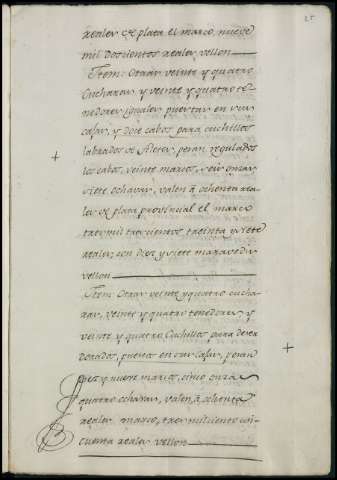 25
reales de plata el marco, nueve
mil doscientos reales vellon
Ytem: Otras veinte y quatro
Cucharas, y veinte y quatro te-
nedores iguales puestas en sus
cajas, y doce cabos para cuchillos
labrados de pesan regulados
los cabos, veinte marcos, seis onzas
siete ochavas, valen á ochenta rea-
les de plata provincial el marco
tres mil trescientos treinta y siete
reales, con diez y siete maravedis
vellon
Ytem: Otras veinte y quatro cucha-
ras, veinte y quatro tenedores y
veinte y quatro Cuchillos para
dorados, puestos en sus cajas, pesan
y nueve marcos, cinco onzas
quatro ochavas, valen, á ochenta
reales marco, tres mil ciento cin-
cuenta reales vellon